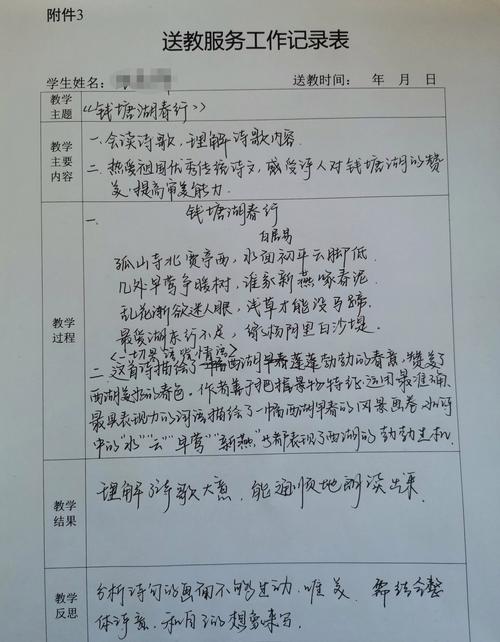 附件3
送教服务工作记录表
学生姓名：
送教时间：　年　月　日
教学主题
《钱塘湖春行》
教学主要内容
一.会读诗歌，理解诗歌内容.
二.热爱祖国优秀传统诗文，感受诗人对钱塘湖的赞
美，提高审美能力.
教学过程
一.
钱塘湖春行
白居易
孤山寺北贾亭西，水面初平云脚低
几处早莺争暖树，谁家新燕啄春泥
乱花渐欲迷人眼，浅草才能没马蹄
最爱湖东行不足，绿杨阴里白沙堤.
<一切景语皆情语>
二.这首诗描绘了西湖早春蓬蓬勃勃的春意，赞美了
西湖美好的春色。作者善于把握景物特征，运用最准确
最具表现力的词语描绘了一幅西湖早春的风景画卷.
中的"水""云""早莺""新燕"都表现了西湖的勃勃生机.
教学结果
理解了诗歌大意，能通顺地朗读出来.
教学反思
分析诗句的画面不够生动、唯美，需结合整
体诗意，和自己的想象来写.